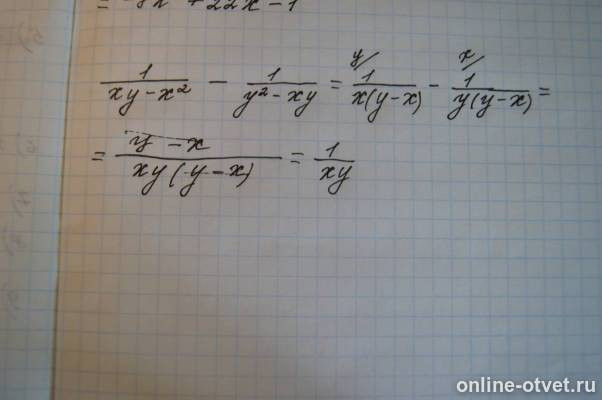 = -8x² + 22x - 1
1/(xy - x²) - 1/(y² - xy) = y/ 1/(x(y - x)) - x/ 1/(y(y - x)) =
= (y - x)/(xy(y - x)) = 1/(xy)
online-otvet.ru